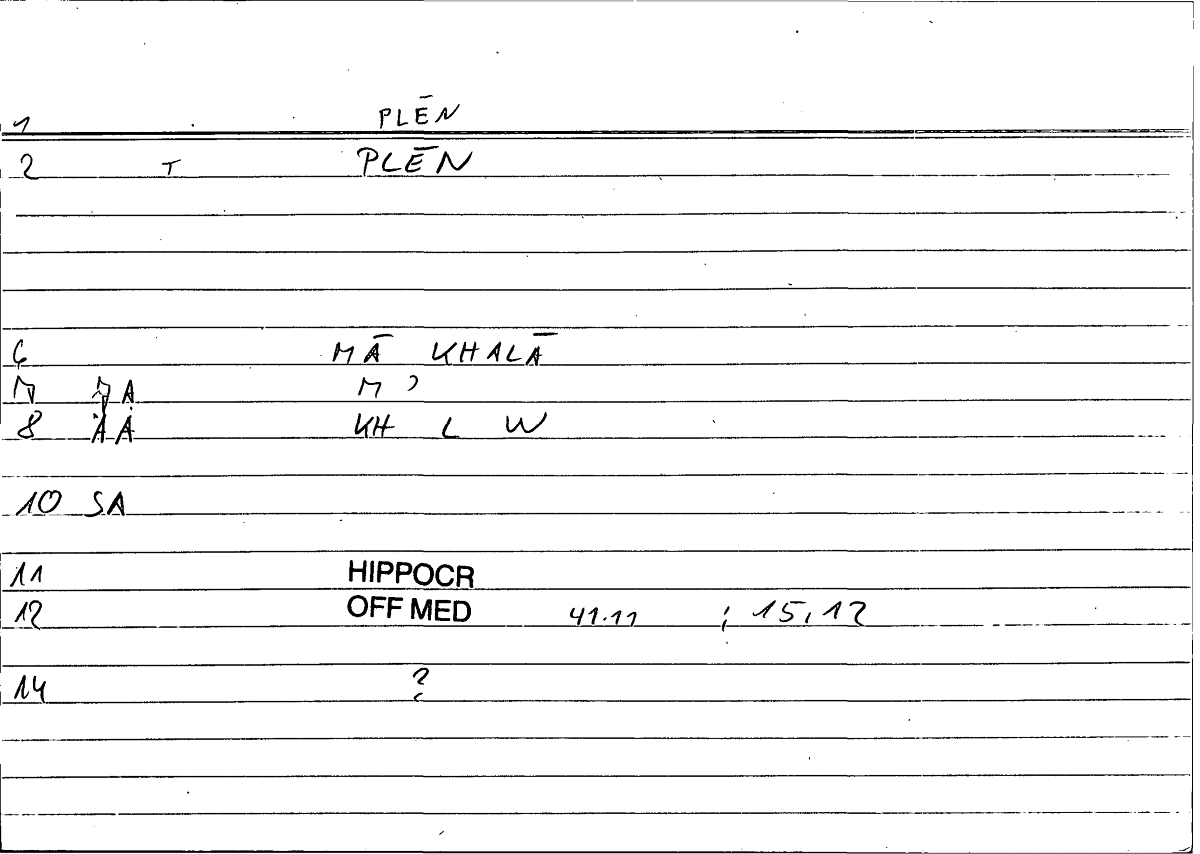 1 PLĒN
2 T PLĒN
6 MĀ KHALĀ
M ʾ
8 ÄÄ KH L W
10 SA
11 HIPPOCR
12 OFF MED 41.11 ; 15,12
14 ?